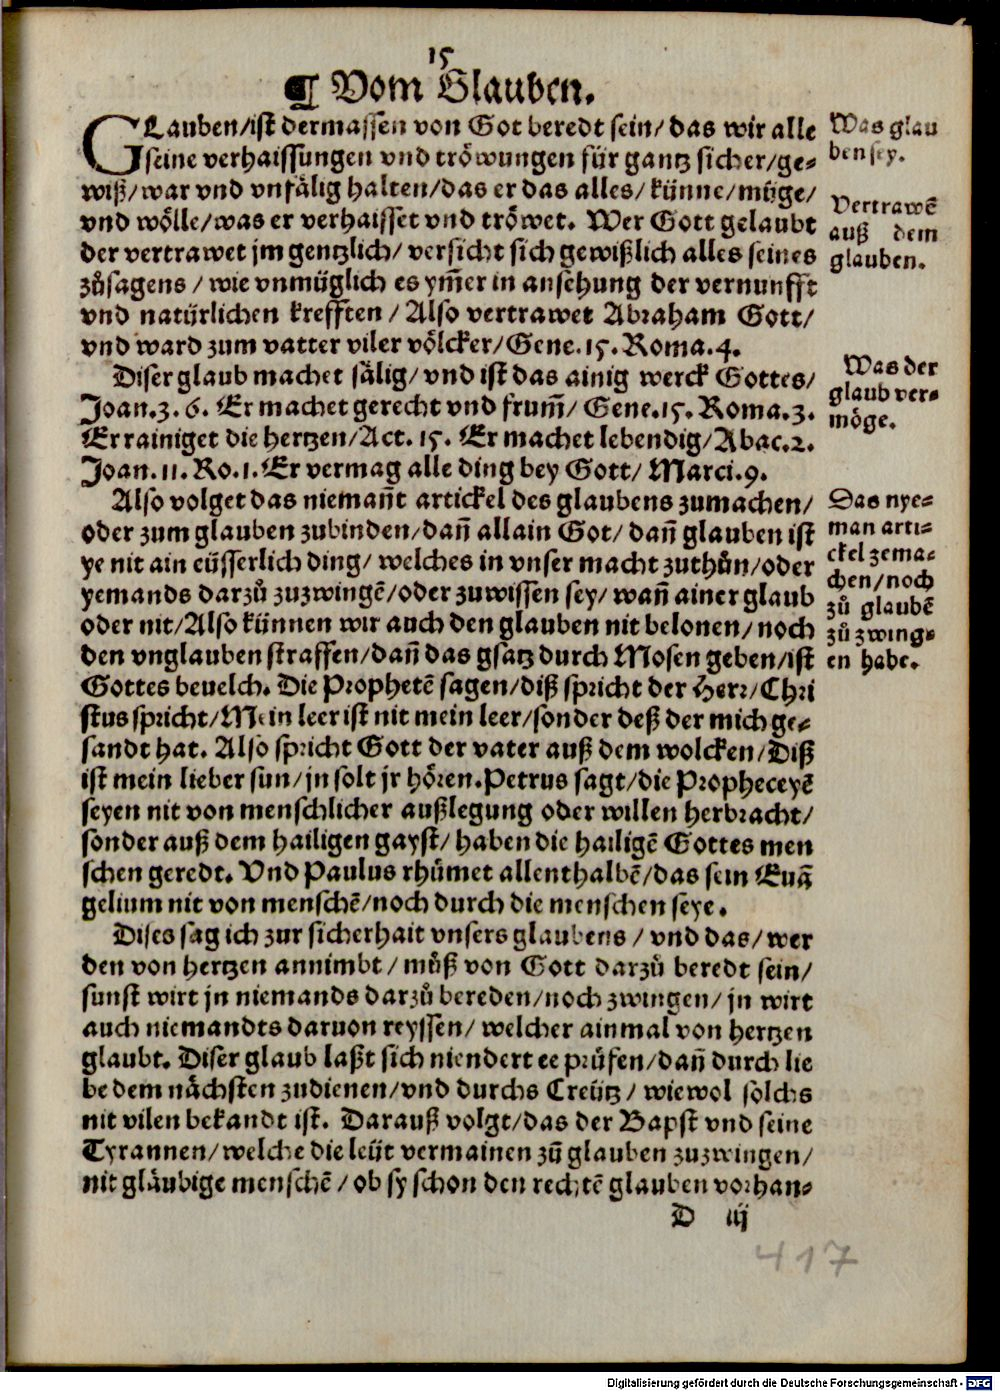 15
¶ Vom Glauben.
GLauben/ist dermassen von Got beredt sein/das wir alle
seine verhaissungen vnd tröwungen für gantz sicher/ge-
wiß/war vnd vnfälig halten/das er das alles/künne/müge/
vnd wölle/was er verhaisset vnd tröwet. Wer Gott gelaubt
der vertrawet jm gentzlich/versicht sich gewißlich alles seines
zůsagens/wie vnmüglich es ym̃er in ansehung der vernunfft
vnd natürlichen krefften/Also vertrawet Abraham Gott/
vnd ward zum vatter viler völcker/Gene.15.Roma.4.
Diser glaub machet sälig/vnd ist das ainig werck Gottes/
Joan.3.6. Er machet gerecht vnd frum̃/Gene.15.Roma.3.
Er rainiget die hertzen/Act.15. Er machet lebendig/Abac.2.
Joan.11.Ro.1. Er vermag alle ding bey Gott/Marci.9.
Also volget das niemañt artickel des glaubens zumachen/
oder zum glauben zubinden/dañ allain Got/dañ glauben ist
ye nit ain eüsserlich ding/welches in vnser macht zuthůn/oder
yemands darzů zuzwingẽ/oder zuwissen sey/wañ ainer glaub
oder nit/Also künnen wir auch den glauben nit belonen/noch
den vnglauben straffen/dañ das gsatz durch Mosen geben/ist
Gottes beuelch. Die Prophetẽ sagen/diß spricht der Herr/Chri
stus spricht/Mein leer ist nit mein leer/sonder deß der mich ge-
sandt hat. Also spricht Gott der vater auß dem wolcken/Diß
ist mein lieber sun/jn solt jr hören. Petrus sagt/die Propheceyẽ
seyen nit von menschlicher außlegung oder willen herbracht/
sonder auß dem hailigen gayst/haben die hailigẽ Gottes men
schen geredt. Vnd Paulus rhümet allenthalbẽ/das sein Euã
gelium nit von menschẽ/noch durch die menschen seye.
Dises sag ich zur sicherhait vnsers glaubens/vnd das/wer
den von hertzen annimbt/můß von Gott darzů beredt sein/
sunst wirt jn niemands darzů bereden/noch zwingen/jn wirt
auch niemandts daruon reyssen/welcher ainmal von hertzen
glaubt. Diser glaub laßt sich niendert ee prüfen/dañ durch lie
be dem nächsten zudienen/vnd durchs Creütz/wiewol solchs
nit vilen bekandt ist. Darauß volgt/das der Bapst vnd seine
Tyrannen/welche die leüt vermainen zů glauben zuzwingen/
nit gläubige menschẽ/ob sy schon den rechtẽ glauben vorhan-
D iij
Was glau
ben sey.
Vertrawẽ
auß dem
glauben.
Was der
glaub ver-
möge.
Das nye-
man arti-
ckel zema-
chen/noch
zů glaubẽ
zů zwing-
en habe.
417
Digitalisierung gefördert durch die Deutsche Forschungsgemeinschaft - DFG